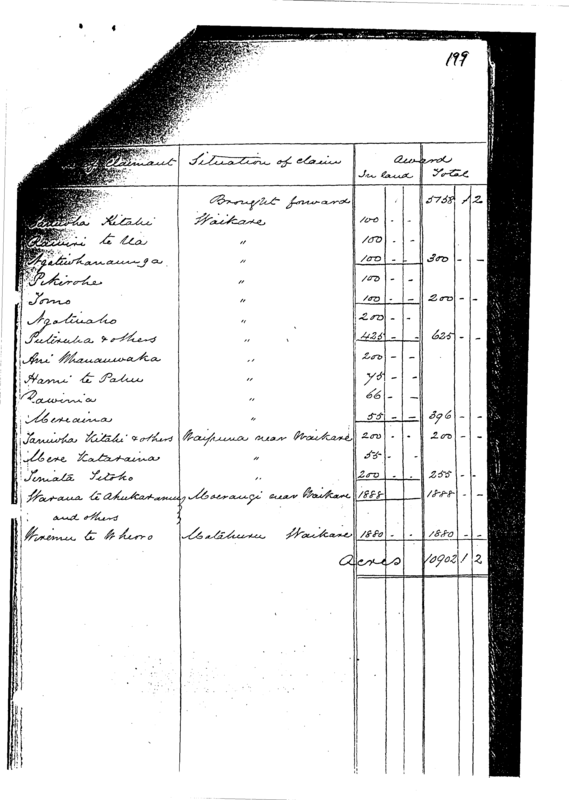 199
of Claimant Situation of claim Award
In land Total
Brought forward 5758 1 2
Kitahi Waikare 100 - -
Rawiri te Ua " 100 - -
Ngatiwhanaunga " 100 - - 300 - -
Pikirohe " 100 - -
Tomo " 100 - - 200 - -
Ngatinaho " 200 - -
& others " 425 - - 625 - -
Ani " 200 - -
Hami te Pahu " 75 - -
Rawinia " 66 - -
Mereaina " 55 - - 396 - -
Taniwha Kitahi & others Waipuna near Waikare 200 - - 200 - -
Mere Kataraina " 55 - -
Titoko " 200 - - 255 - -
Moerangi near Waikare 1888 1888 - -
and others
Wiremu te Wheoro Matahuru Waikare 1880 - - 1880 - -
Acres 10902 1 2